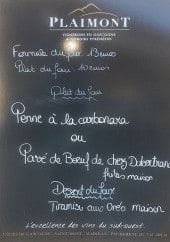 PLAIMONT
VIGNERONS EN GASCOGNE
& PIÉMONT PYRÉNÉEN
Formule du jour 13 euros
Plat du jour 10 euros
Plat du jour
Penne à la carbonara
ou
Pavé de Boeuf de chez
frites maison
Dessert du jour
Tiramisu aux Oréo maison
L'excellence des vins du sud-ouest